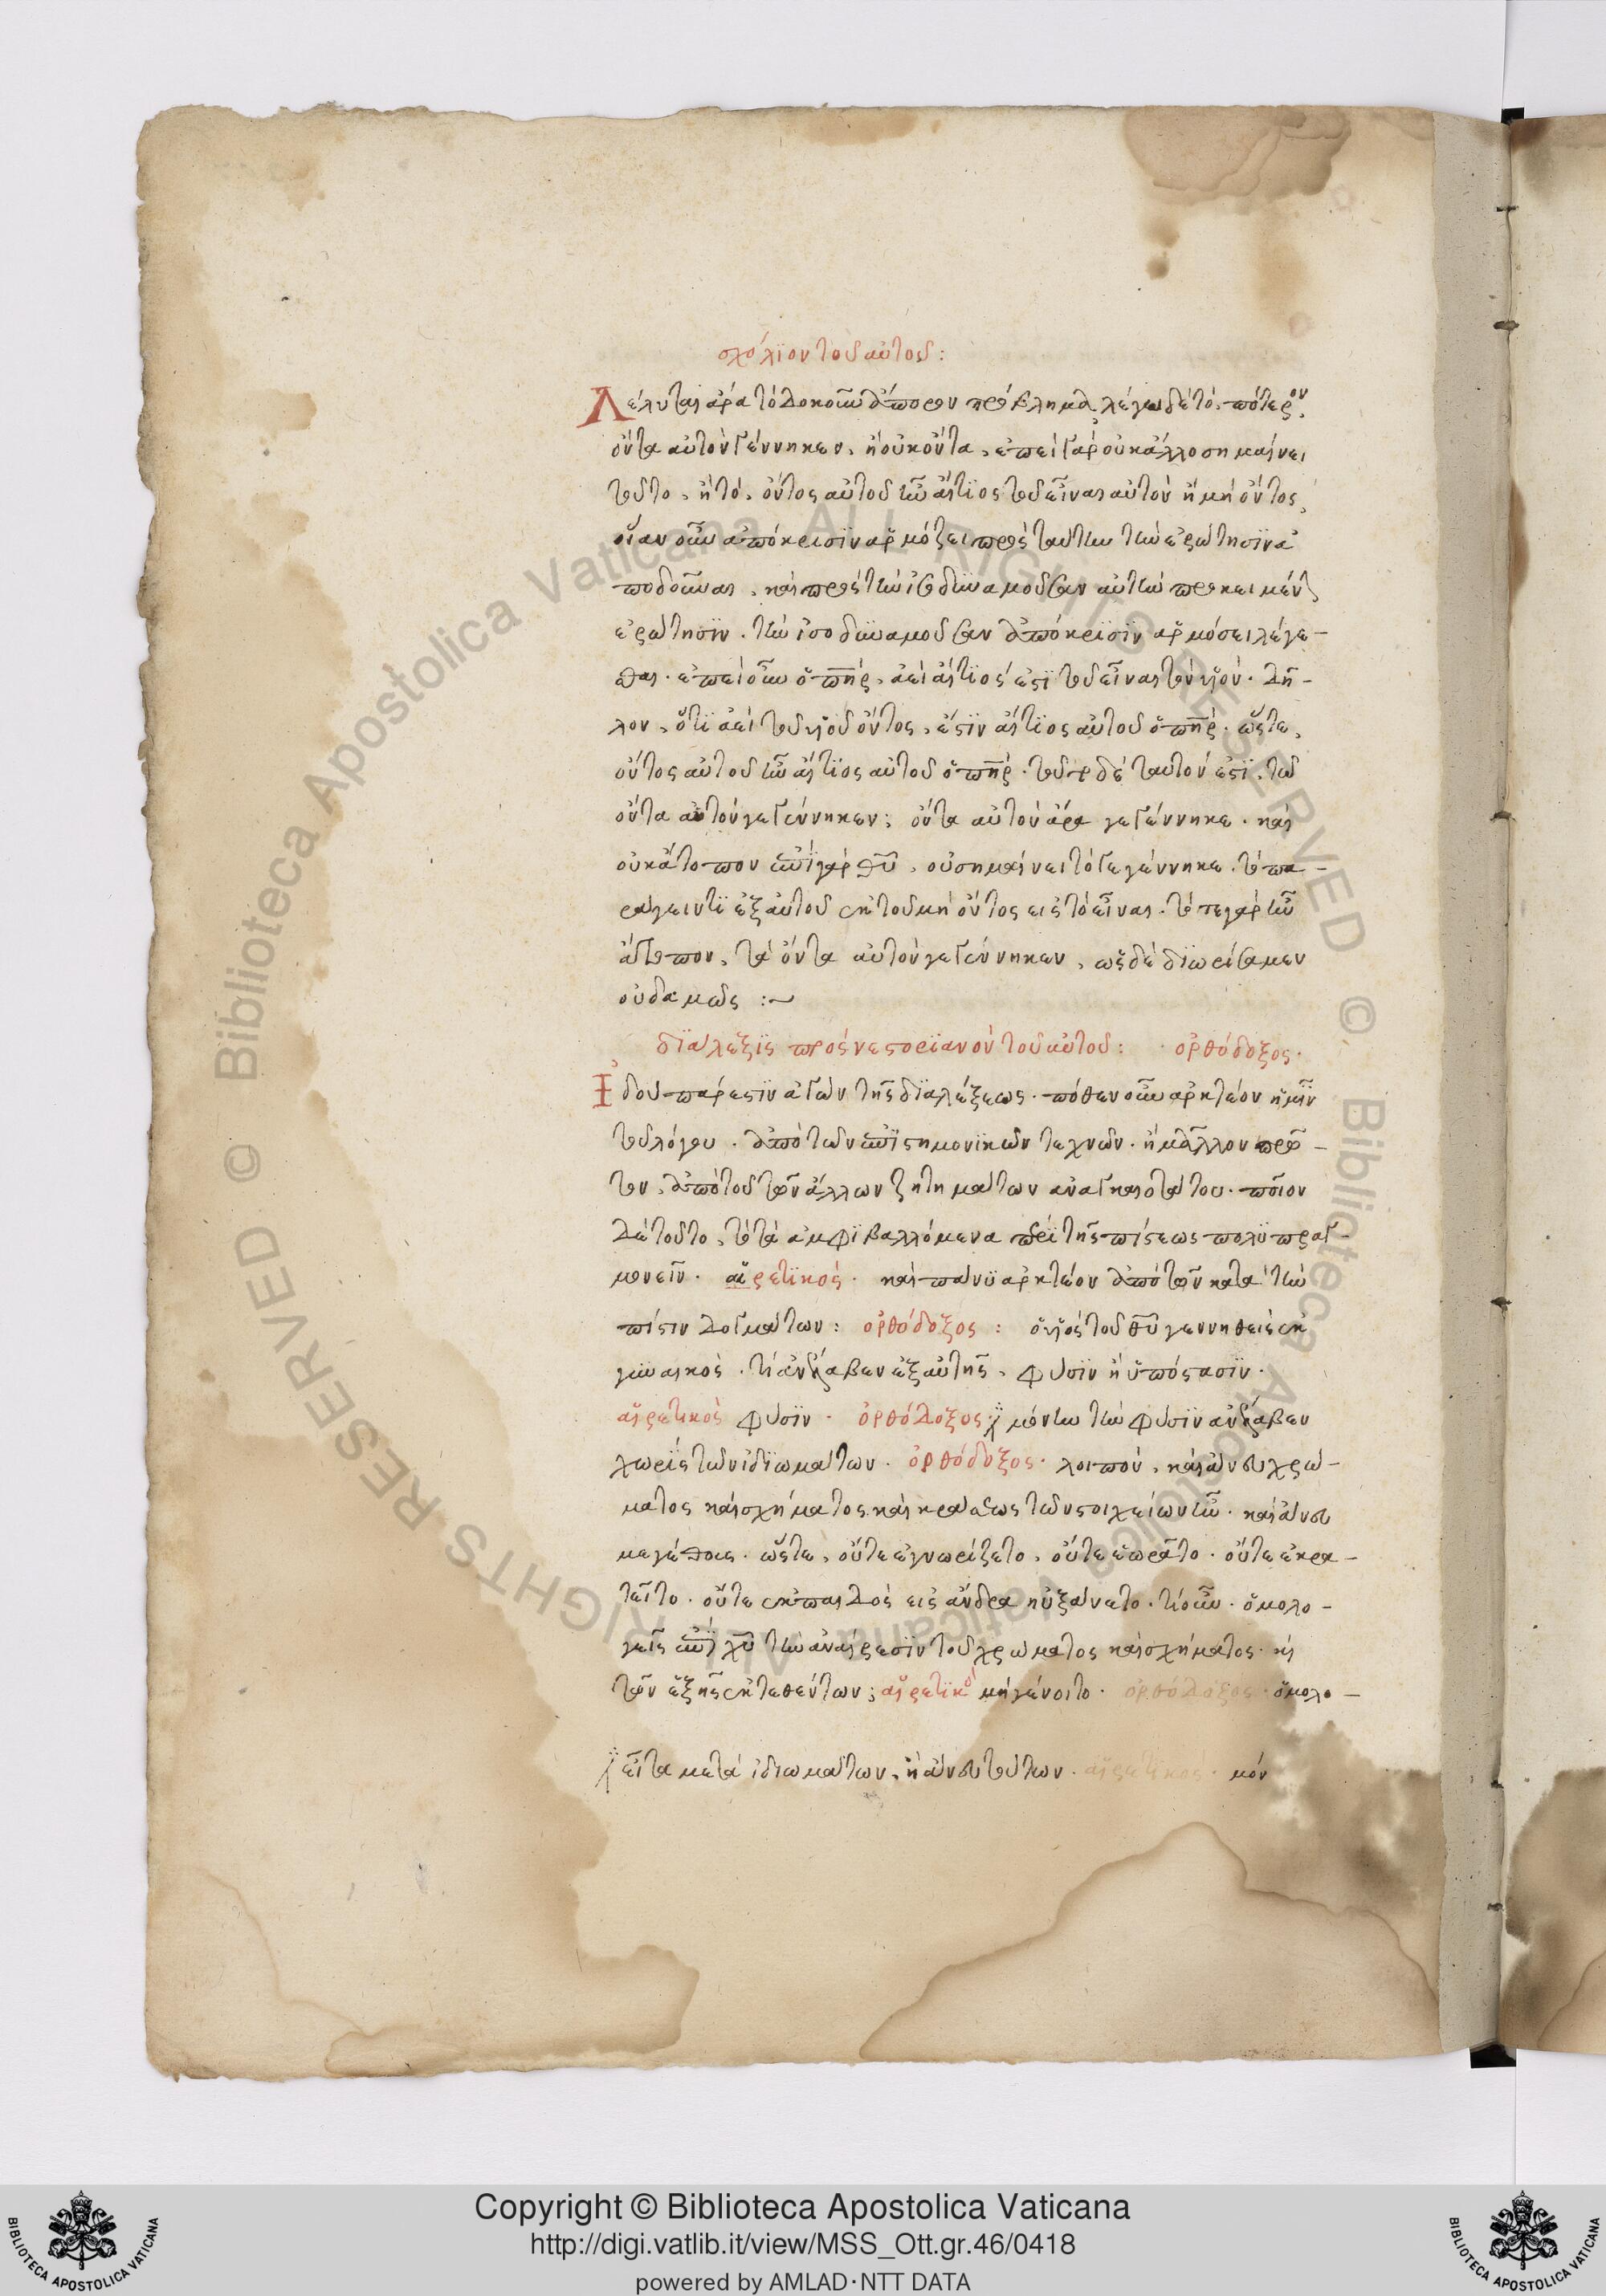 σχόλιον τοῦ αὐτοῦ:
Λέλυται ἄρα τὸ δοκοῦν ἄπορον πρόβλημα, λέγω δὲ τό, πότερον
ὄντα αὐτὸν γέννηκεν, ἢ οὐκ ὄντα, ἐπεὶ γὰρ οὐκ ἄλλο σημαίνει
τοῦτο, ἢ τό, ὄντος αὐτοῦ ἦν αἴτιος τοῦ εἶναι αὐτὸν ἢ μὴ ὄντος,
οἵαν οὖν ἀπόκρισιν ἁρμόζει πρὸς ταύτην τὴν ἐρώτησιν ἀ
ποδοῦναι, καὶ πρὸς τὴν ἰσοδυναμοῦσαν αὐτὴν προκειμένην
ἐρώτησιν. τὴν ἰσοδυναμοῦσαν ἀπόκρισιν ἁρμόσει λέγε-
σθαι. ἐπεὶ οὖν ὁ πηρ, ἀεὶ αἴτιός ἐστι τοῦ εἶναι τὸν υἱόν. δῆ-
λον, ὅτι ἀεὶ τοῦ υἱοῦ ὄντος, ἐστὶν αἴτιος αὐτοῦ ὁ πηρ. ὥστε,
ὄντος αὐτοῦ ἦν αἴτιος αὐτοῦ ὁ πηρ. τοῦτο δὲ ταυτόν ἐστι. τῶ
ὄντα αὐτὸν γεγέννηκεν: ὄντα αὐτὸν ἄρα γεγέννηκε. καὶ
οὐκ ἄτοπον ἐπὶ γὰρ θυ, οὐ σημαίνει τὸ γεγέννηκε. τὸ πα-
ράγειν τι ἐξ αὐτοῦ ἐκ τοῦ μὴ ὄντος εἰς τὸ εἶναι. τότε γὰρ ἦν
ἄτοπον, τὸ ὄντα αὐτὸν γεγέννηκεν, ὡς δὲ διωρίσαμεν
οὐδαμῶς :~
διάλεξις πρὸς νεστοριανὸν τοῦ αὐτοῦ: ὀρθόδοξος.
Ἰδοὺ πάρεστιν ἀγὼν τῆς διαλέξεως. πόθεν οὖν ἀρκτέον ἡμῖν
τοῦ λόγου. ἀπὸ τῶν ἐπιστημονικῶν τεχνῶν. ἢ μᾶλλον πρῶ-
τον, ἀπὸ τοῦ τῶν ἄλλων ζητημάτων ἀναγκαιοτάτου. ποῖον
δὲ τοῦτο, τὸ τὰ ἀμφιβαλλόμενα περὶ τῆς πίστεως πολυπραγ-
μονεῖν. αἱρετικός. καὶ πάνυ ἀρκτέον ἀπὸ τῶν κατὰ τὴν
πίστιν δογμάτων: ὀρθόδοξος: ὁ υἱὸς τοῦ θυ γεννηθεὶς ἐκ
γυναικός. τί ἀνέλαβεν ἐξ αὐτῆς, φύσιν ἢ ὑπόστασιν.
αἱρετικὸς φύσιν. ὀρθόδοξος μόνην τὴν φύσιν ἀνέλαβεν
χωρὶς τῶν ἰδιωμάτων. ὀρθόδοξος. λοιπόν, καὶ ἄνευ χρώ-
ματος καὶ σχήματος καὶ κράσεως τῶν στοιχείων ἦν. καὶ ἄνευ
μεγέθους. ὥστε, οὔτε ἐγνωρίζετο, οὔτε ἑωρᾶτο. οὔτε ἐκρα-
τεῖτο. οὔτε ἐκ παιδὸς εἰς ἄνδρα ηὐξάνετο. τί οὖν. ὁμολο-
γεῖς ἐπὶ χυ τὴν ἀναίρεσιν τοῦ χρώματος καὶ σχήματος. καὶ
τῶν ἑξῆς ἐκτεθέντων; αἱρετικὸ μὴ γένοιτο. ὀρθόδοξος. ὁμολο-
εἶτα μετὰ ἰδιωμάτων, ἢ ἄνευ τούτων. αἱρετικός. μόν
Copyright © Biblioteca Apostolica Vaticana
http://digi.vatlib.it/view/MSS_Ott.gr.46/0418
powered by AMLAD·NTT DATA